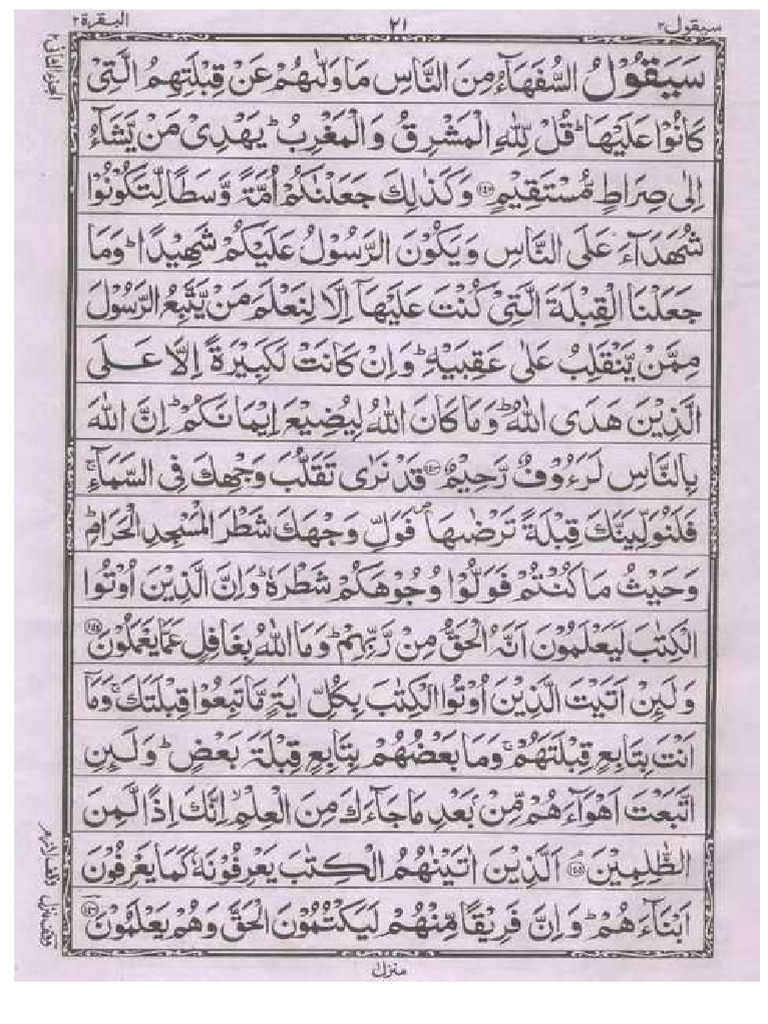 سيقول ٢
٢١
البقرة ٢
الجزء الثاني ٢
سَيَقُوْلُ السُّفَهَآءُ مِنَ النَّاسِ مَا وَلّٰىهُمْ عَنْ قِبْلَتِهِمُ الَّتِيْ
كَانُوْا عَلَيْهَا ؕ قُلْ لِّلّٰهِ الْمَشْرِقُ وَالْمَغْرِبُ ؕ يَهْدِيْ مَنْ يَّشَآءُ
اِلٰى صِرَاطٍ مُّسْتَقِيْمٍ ﴿١٤٢﴾ وَكَذٰلِكَ جَعَلْنٰكُمْ اُمَّةً وَّسَطًا لِّتَكُوْنُوْا
شُهَدَآءَ عَلَى النَّاسِ وَيَكُوْنَ الرَّسُوْلُ عَلَيْكُمْ شَهِيْدًا ؕ وَمَا
جَعَلْنَا الْقِبْلَةَ الَّتِيْ كُنْتَ عَلَيْهَآ اِلَّا لِنَعْلَمَ مَنْ يَّتَّبِعُ الرَّسُوْلَ
مِمَّنْ يَّنْقَلِبُ عَلٰى عَقِبَيْهِ ؕ وَاِنْ كَانَتْ لَكَبِيْرَةً اِلَّا عَلَى
الَّذِيْنَ هَدَى اللّٰهُ ؕ وَمَا كَانَ اللّٰهُ لِيُضِيْعَ اِيْمَانَكُمْ ؕ اِنَّ اللّٰهَ
بِالنَّاسِ لَرَءُوْفٌ رَّحِيْمٌ ﴿١٤٣﴾ قَدْ نَرٰى تَقَلُّبَ وَجْهِكَ فِي السَّمَآءِ ۚ
فَلَنُوَلِّيَنَّكَ قِبْلَةً تَرْضٰىهَا ۪ فَوَلِّ وَجْهَكَ شَطْرَ الْمَسْجِدِ الْحَرَامِ ؕ
وَحَيْثُ مَا كُنْتُمْ فَوَلُّوْا وُجُوْهَكُمْ شَطْرَهٗ ؕ وَاِنَّ الَّذِيْنَ اُوْتُوا
الْكِتٰبَ لَيَعْلَمُوْنَ اَنَّهُ الْحَقُّ مِنْ رَّبِّهِمْ ؕ وَمَا اللّٰهُ بِغَافِلٍ عَمَّا يَعْمَلُوْنَ ﴿١٤٤﴾
وَلَئِنْ اَتَيْتَ الَّذِيْنَ اُوْتُوا الْكِتٰبَ بِكُلِّ اٰيَةٍ مَّا تَبِعُوْا قِبْلَتَكَ ۚ وَمَآ
اَنْتَ بِتَابِعٍ قِبْلَتَهُمْ ۚ وَمَا بَعْضُهُمْ بِتَابِعٍ قِبْلَةَ بَعْضٍ ؕ وَلَئِنِ
اتَّبَعْتَ اَهْوَآءَهُمْ مِّنْۢ بَعْدِ مَا جَآءَكَ مِنَ الْعِلْمِ ۙ اِنَّكَ اِذًا لَّمِنَ
الظّٰلِمِيْنَ ﴿١٤٥﴾ اَلَّذِيْنَ اٰتَيْنٰهُمُ الْكِتٰبَ يَعْرِفُوْنَهٗ كَمَا يَعْرِفُوْنَ
اَبْنَآءَهُمْ ؕ وَاِنَّ فَرِيْقًا مِّنْهُمْ لَيَكْتُمُوْنَ الْحَقَّ وَهُمْ يَعْلَمُوْنَ ﴿١٤٦﴾
منزل